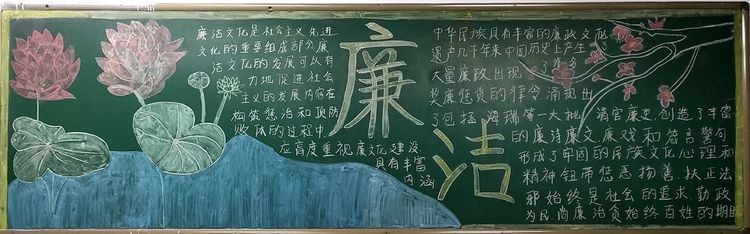 廉洁文化是社会主义先进
文化的重要组成部分廉
洁文化的发展可以有
力地促进社会
主义的发展内容在
构筑惩治和预防
败体的过程中
应高度重视廉文化建设
具有丰富
内涵
廉
洁
中华民族具有丰富的廉政文化
遗产几千年来中国历史上产生
大量廉政出现了许多
奖廉惩贪的律令涌现出
了包拯海瑞等一大批清官廉吏创造了丰富
的廉诗廉文廉戏和箴言警句
形成了牢固的民族文化心理和
精神纽带惩恶扬善扶正法
邪始终是社会的追求勤政
为民尚廉治贪始终百姓的期盼